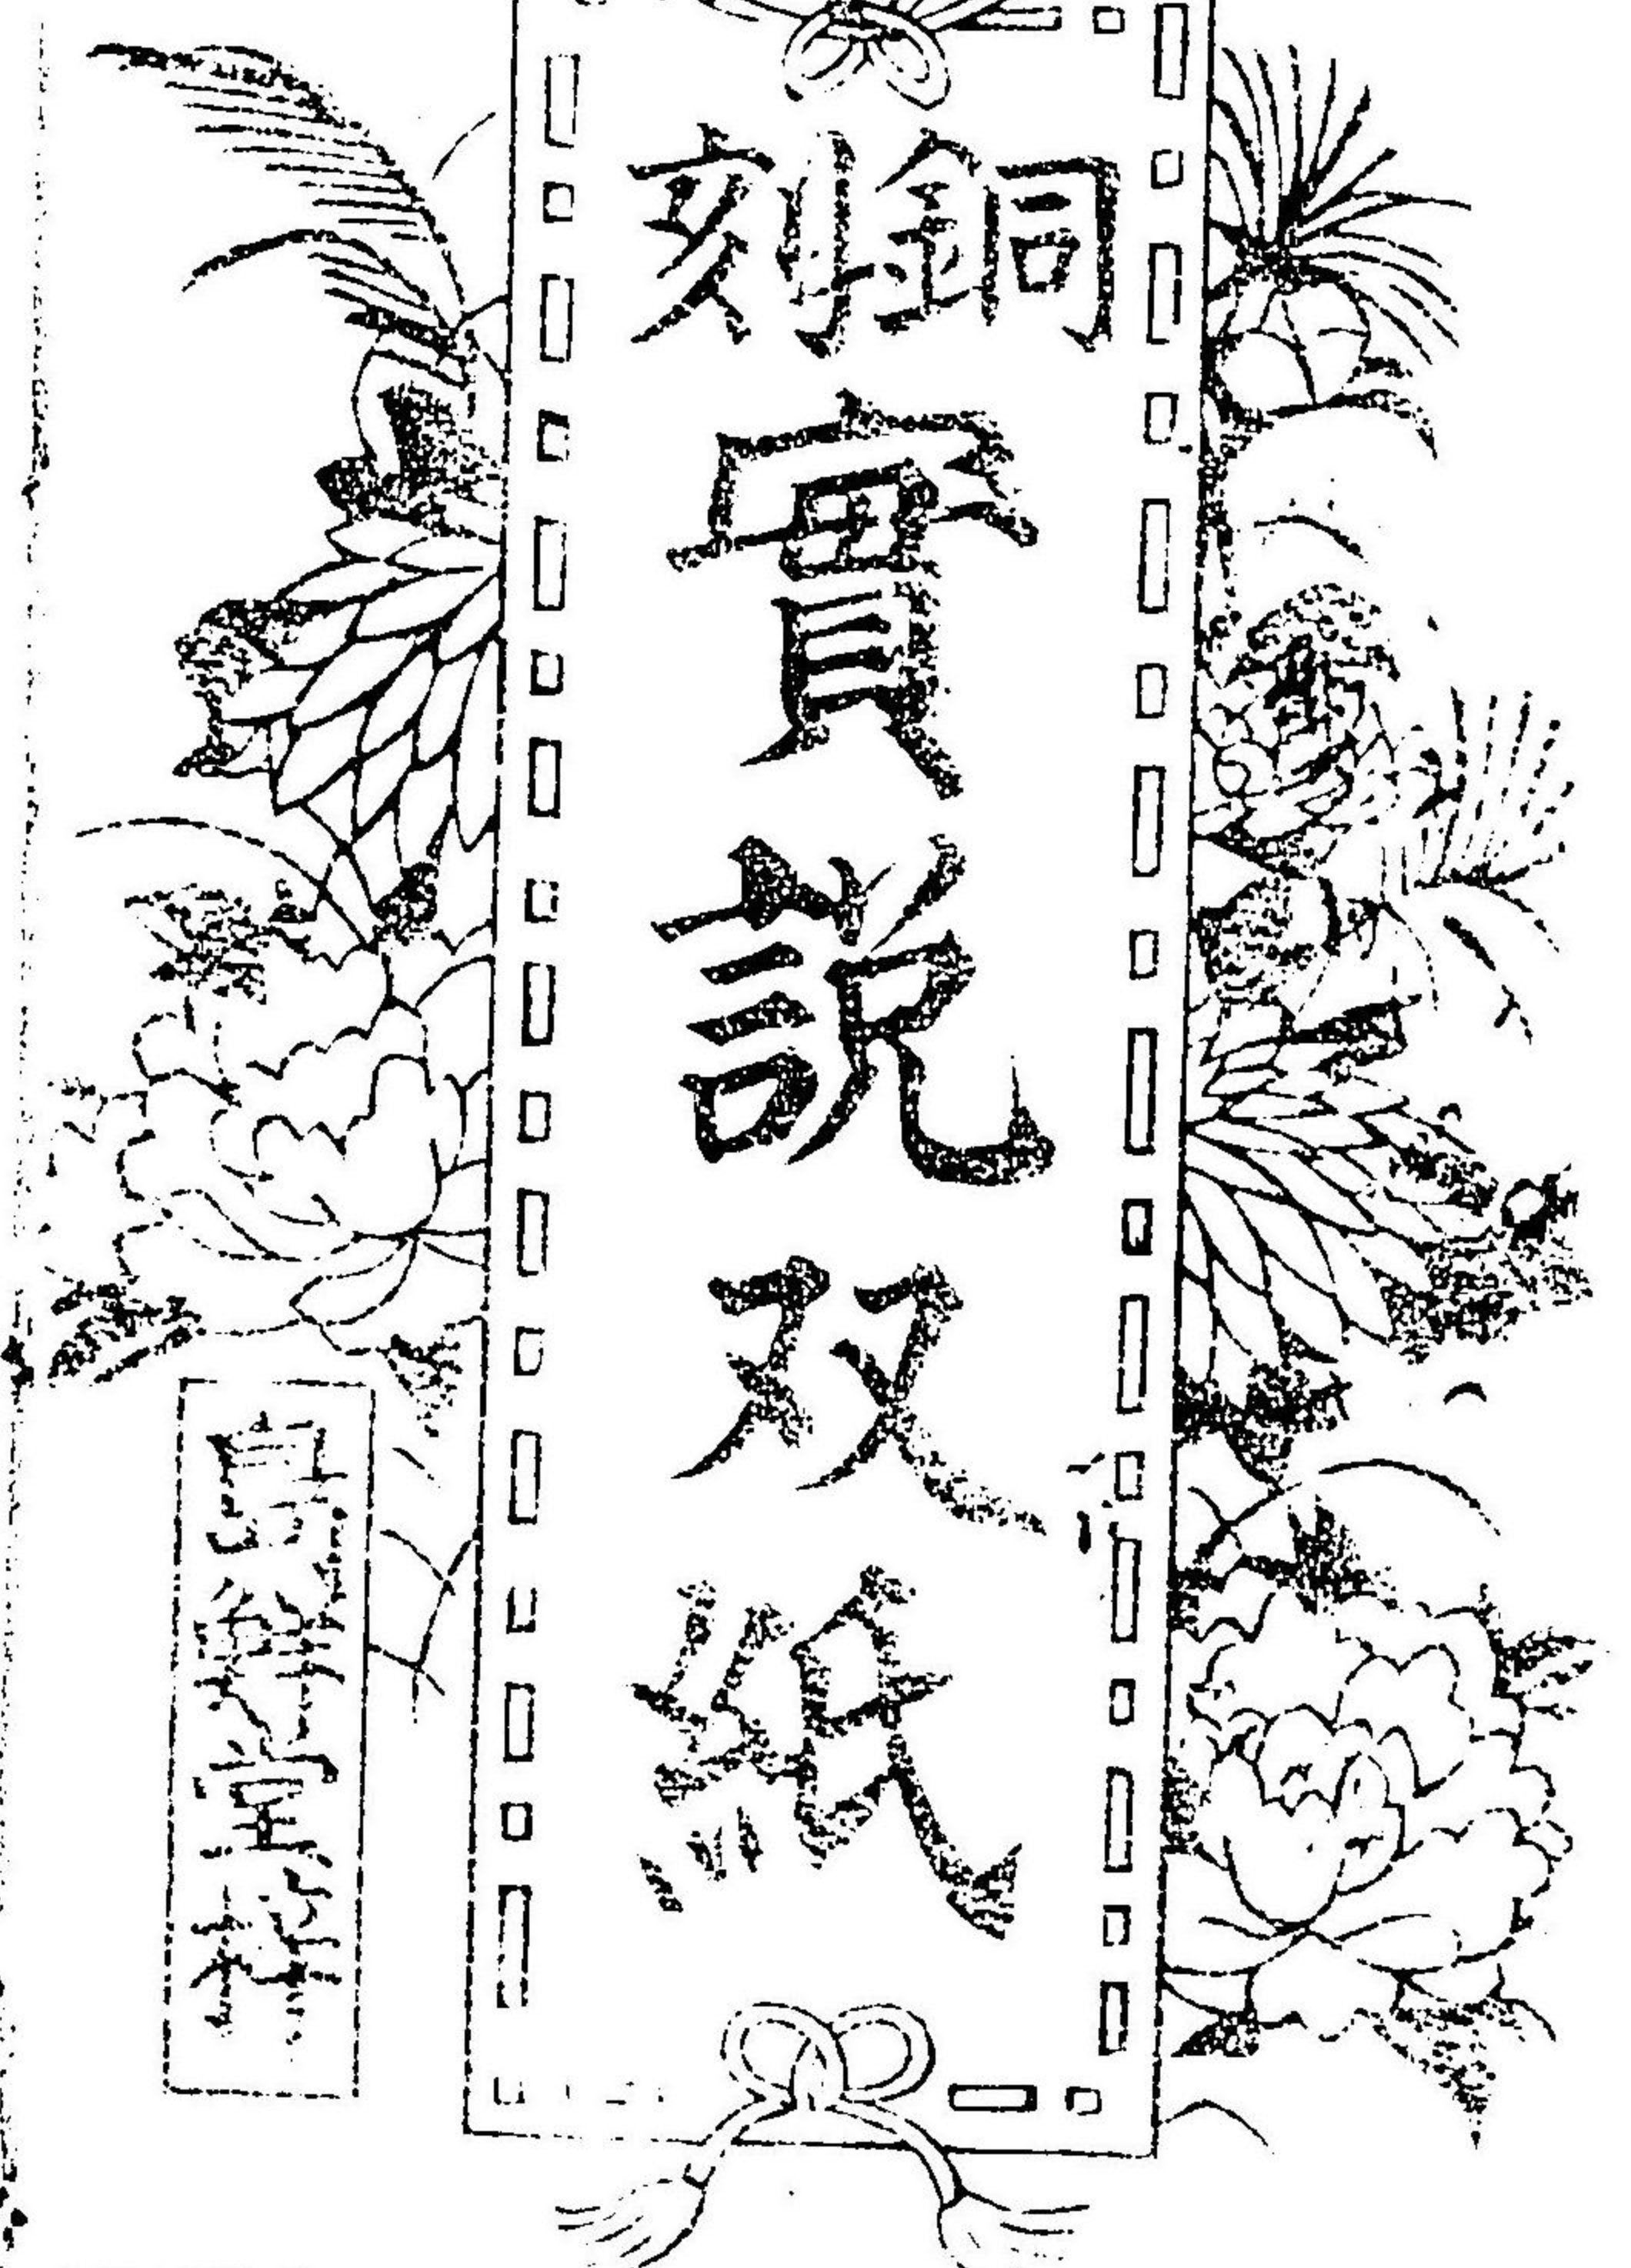 銅刻
實説双紙
島鮮堂梓